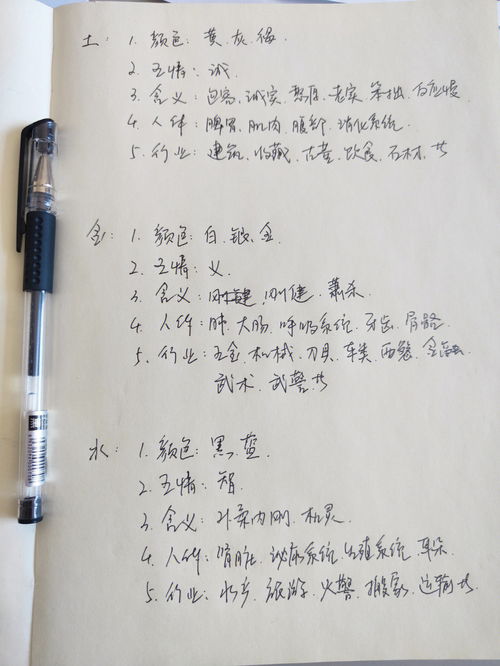 土: 1. 颜色: 黄、灰、褐.
2. 五情: 诚
3. 含义: 包容、诚实、憨厚、老实、笨拙、反应慢
4. 人体: 脾胃、肌肉、腹部、消化系统.
5. 行业: 建筑、收藏、古董、饮食、石材、等
金: 1. 颜色: 白、银、金.
2. 五情: 义.
3. 含义: 刚键、刚健、萧杀.
4. 人体: 肺、大肠、呼吸系统、牙齿、骨骼
5. 行业: 五金、机械、刀具、车类、金融
武术、武警等
水: 1. 颜色: 黑、蓝.
2. 五情: 智.
3. 含义: 外柔内刚、机灵.
4. 人体: 肾脏、泌尿系统、生殖系统、耳朵.
5. 行业: 水产、旅游、火警、搬家、运输等